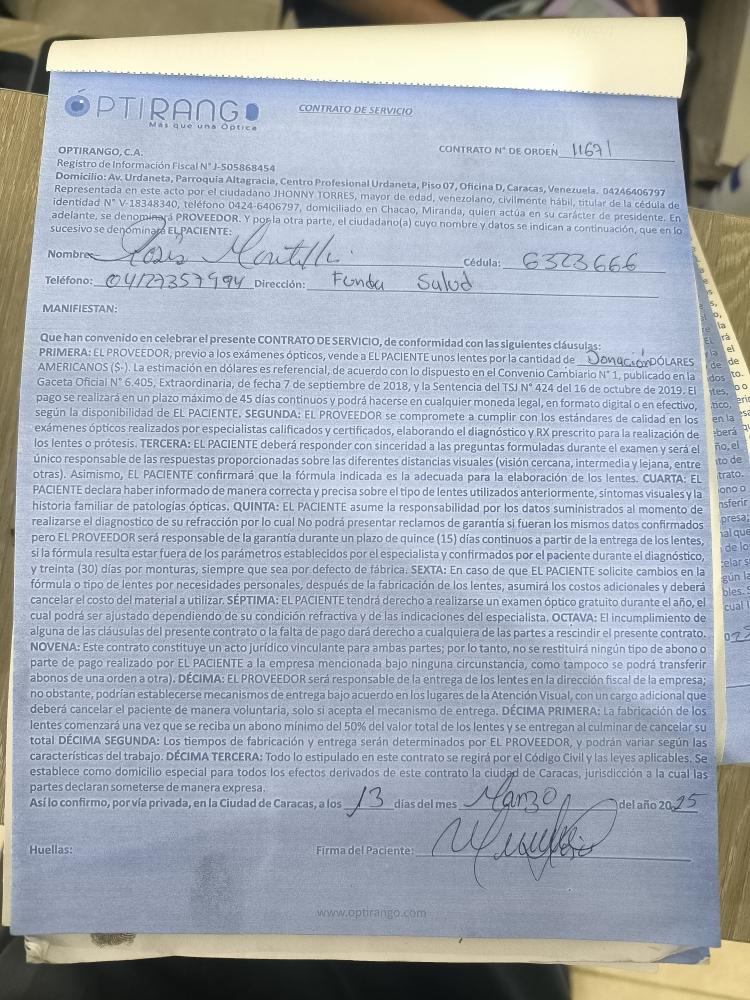 ÓPTIRANGO
Más que una Óptica
CONTRATO DE SERVICIO
OPTIRANGO, C.A.
CONTRATO N° DE ORDEN 11671
Registro de Información Fiscal N° J-505868454
Domicilio: Av. Urdaneta, Parroquia Altagracia, Centro Profesional Urdaneta, Piso 07, Oficina D, Caracas, Venezuela. 04246406797
Representada en este acto por el ciudadano JHONNY TORRES, mayor de edad, venezolano, civilmente hábil, titular de la cédula de
identidad N° V-18348340, teléfono 0424-6406797, domiciliado en Chacao, Miranda, quien actúa en su carácter de presidente. En
adelante, se denominará PROVEEDOR. Y por la otra parte, el ciudadano(a) cuyo nombre y datos se indican a continuación, que en lo
sucesivo se denominará EL PACIENTE:
Nombre: Cédula: 6323666
Teléfono: 04127357494 Dirección: Funda Salud
MANIFIESTAN:
Que han convenido en celebrar el presente CONTRATO DE SERVICIO, de conformidad con las siguientes cláusulas:
PRIMERA: EL PROVEEDOR, previo a los exámenes ópticos, vende a EL PACIENTE unos lentes por la cantidad de Donación DÓLARES
AMERICANOS (S-). La estimación en dólares es referencial, de acuerdo con lo dispuesto en el Convenio Cambiario N° 1, publicado en la
Gaceta Oficial N° 6.405, Extraordinaria, de fecha 7 de septiembre de 2018, y la Sentencia del TSJ N° 424 del 16 de octubre de 2019. El
pago se realizará en un plazo máximo de 45 días continuos y podrá hacerse en cualquier moneda legal, en formato digital o en efectivo,
según la disponibilidad de EL PACIENTE. SEGUNDA: EL PROVEEDOR se compromete a cumplir con los estándares de calidad en los
exámenes ópticos realizados por especialistas calificados y certificados, elaborando el diagnóstico y RX prescrito para la realización de
los lentes o prótesis. TERCERA: EL PACIENTE deberá responder con sinceridad a las preguntas formuladas durante el examen y será el
único responsable de las respuestas proporcionadas sobre las diferentes distancias visuales (visión cercana, intermedia y lejana, entre
otras). Asimismo, EL PACIENTE confirmará que la fórmula indicada es la adecuada para la elaboración de los lentes. CUARTA: EL
PACIENTE declara haber informado de manera correcta y precisa sobre el tipo de lentes utilizados anteriormente, síntomas visuales y la
historia familiar de patologías ópticas. QUINTA: EL PACIENTE asume la responsabilidad por los datos suministrados al momento de
realizarse el diagnostico de su refracción por lo cual No podrá presentar reclamos de garantía si fueran los mismos datos confirmados
pero EL PROVEEDOR será responsable de la garantía durante un plazo de quince (15) días continuos a partir de la entrega de los lentes,
si la fórmula resulta estar fuera de los parámetros establecidos por el especialista y confirmados por el paciente durante el diagnóstico,
y treinta (30) días por monturas, siempre que sea por defecto de fábrica. SEXTA: En caso de que EL PACIENTE solicite cambios en la
fórmula o tipo de lentes por necesidades personales, después de la fabricación de los lentes, asumirá los costos adicionales y deberá
cancelar el costo del material a utilizar. SÉPTIMA: EL PACIENTE tendrá derecho a realizarse un examen óptico gratuito durante el año, el
cual podrá ser ajustado dependiendo de su condición refractiva y de las indicaciones del especialista. OCTAVA: El incumplimiento de
alguna de las cláusulas del presente contrato o la falta de pago dará derecho a cualquiera de las partes a rescindir el presente contrato.
NOVENA: Este contrato constituye un acto jurídico vinculante para ambas partes; por lo tanto, no se restituirá ningún tipo de abono o
parte de pago realizado por EL PACIENTE a la empresa mencionada bajo ninguna circunstancia, como tampoco se podrá transferir
abonos de una orden a otra). DÉCIMA: EL PROVEEDOR será responsable de la entrega de los lentes en la dirección fiscal de la empresa;
no obstante, podrían establecerse mecanismos de entrega bajo acuerdo en los lugares de la Atención Visual, con un cargo adicional que
deberá cancelar el paciente de manera voluntaria, solo si acepta el mecanismo de entrega. DÉCIMA PRIMERA: La fabricación de los
lentes comenzará una vez que se reciba un abono mínimo del 50% del valor total de los lentes y se entregan al culminar de cancelar su
total DÉCIMA SEGUNDA: Los tiempos de fabricación y entrega serán determinados por EL PROVEEDOR, y podrán variar según las
características del trabajo. DÉCIMA TERCERA: Todo lo estipulado en este contrato se regirá por el Código Civil y las leyes aplicables. Se
establece como domicilio especial para todos los efectos derivados de este contrato la ciudad de Caracas, jurisdicción a la cual las
partes declaran someterse de manera expresa.
Así lo confirmo, por vía privada, en la Ciudad de Caracas, a los 13 días del mes Marzo del año 2025
Huellas:
Firma del Paciente:
www.optirango.com